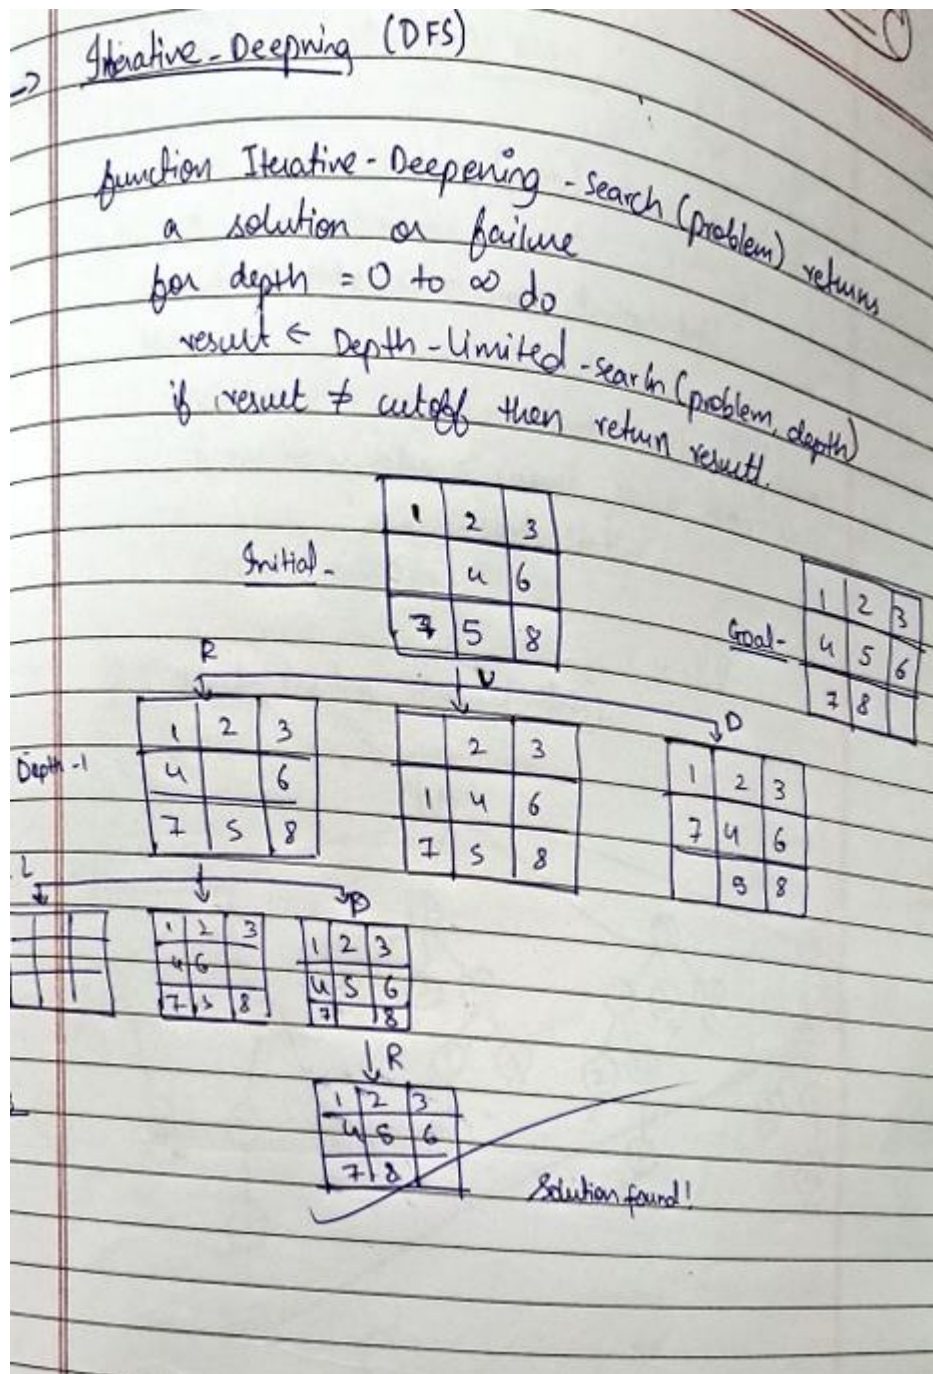 → Iterative-Deepning (DFS)
function Iterative-Deepening-Search (problem) returns
a solution or failure
for depth = 0 to ∞ do
result ← Depth-limited-search (problem, depth)
if result ≠ cutoff then return result.
Initial-
1 2 3
4 6
7 5 8
Goal-
1 2 3
4 5 6
7 8
R U D
Depth-1
1 2 3
4 6
7 5 8
2 3
1 4 6
7 5 8
1 2 3
7 4 6
5 8
L D
1 2 3
4 6
7 5 8
1 2 3
4 5 6
7 8
R
1 2 3
4 5 6
7 8
Solution found!